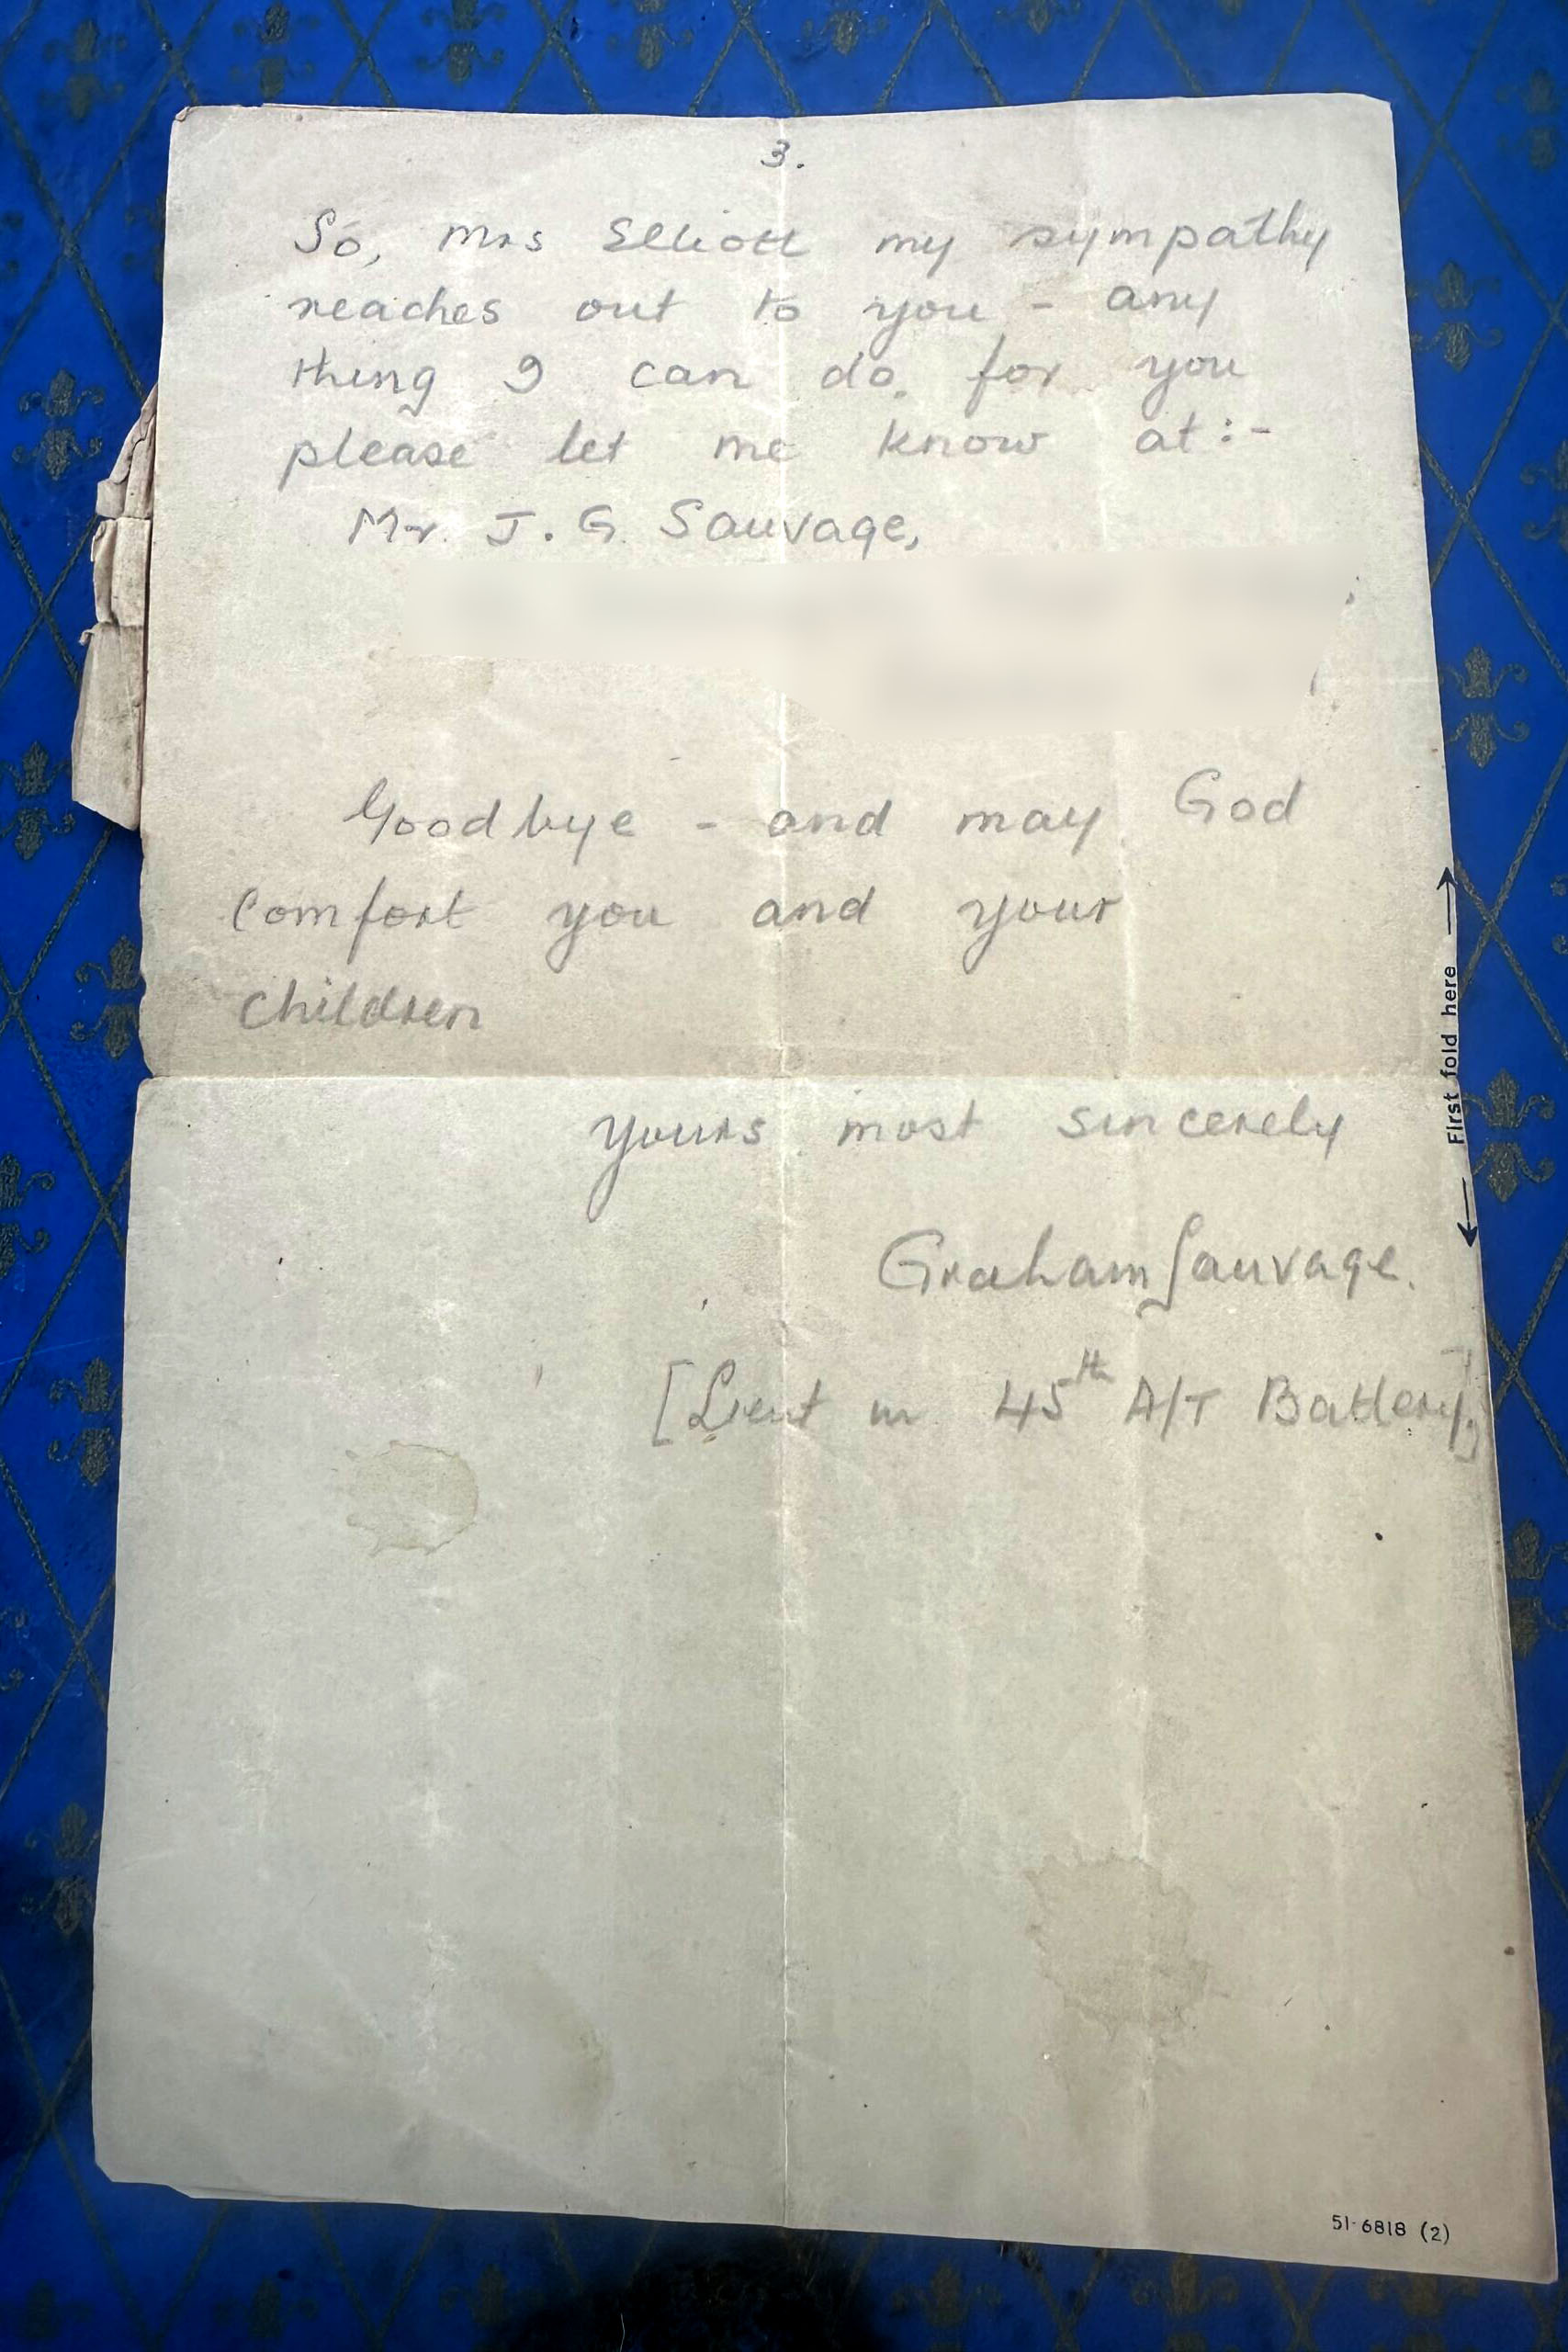 3.
So, Mrs Elliott my sympathy
reaches out to you - any
thing I can do. for you
please let me know at:-
Mr. J. G. Sauvage,
Goodbye - and may God
comfort you and your
children
yours most sincerely
Graham Sauvage.
[Lieut in 45th A/T Battery]
← First fold here →
51-6818 (2)